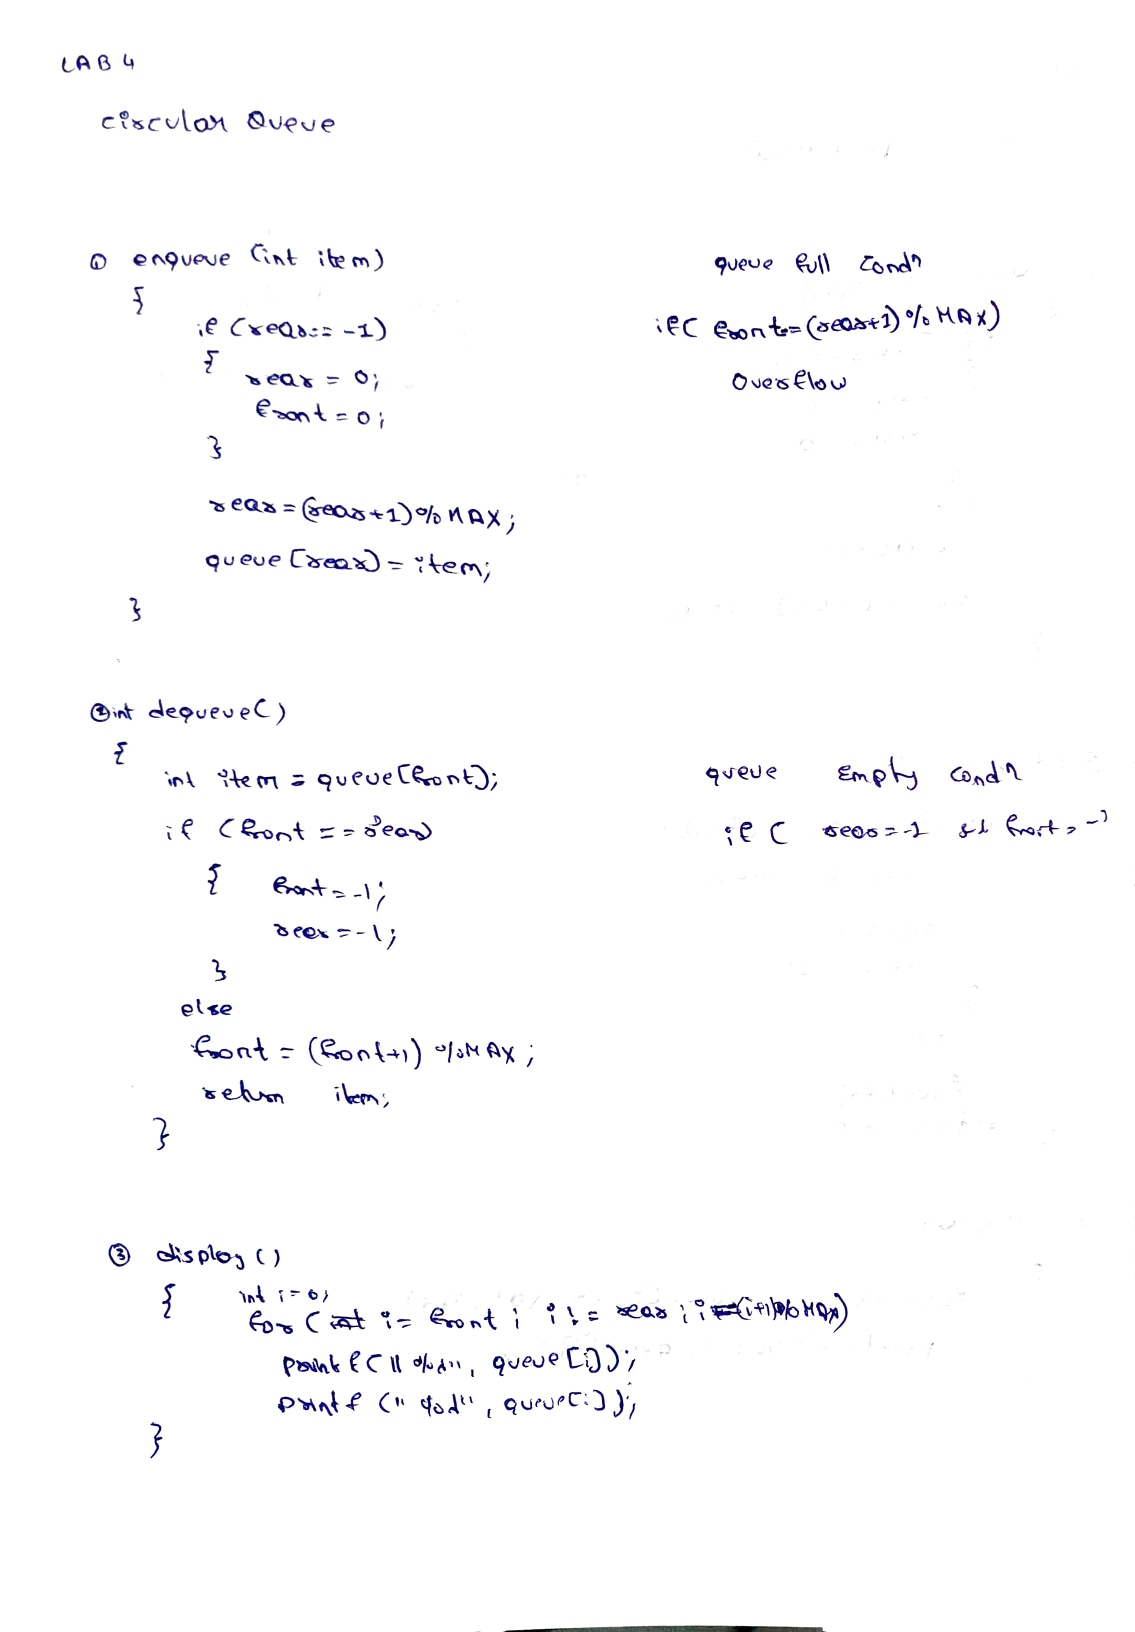 LAB 4
circular Queue
① enqueue (int item)
{
if (rear == -1)
{
rear = 0;
front = 0;
}
rear = (rear+1) % MAX;
queue [rear] = item;
}
queue full condn
if ( front == (rear+1) % MAX)
Overflow
② int dequeue()
{
int item = queue[front];
if (front == rear)
{ front = -1;
rear = -1;
}
else
front = (front+1) % MAX;
return item;
}
queue Empty condn
if ( rear = -1 && front = -1
③ display ()
{ int i = 0;
for (int i = front ; i != rear ; i = (i+1)%MAX)
printf ("%d", queue [i]);
printf ("%d", queue[i]);
}